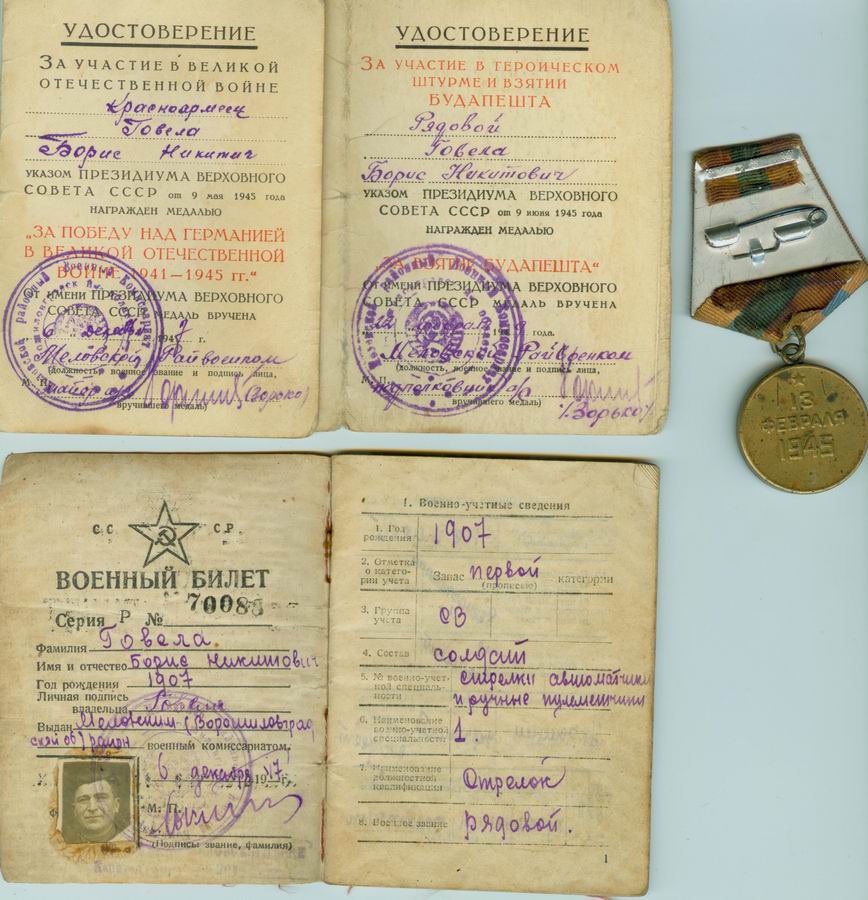 УДОСТОВЕРЕНИЕ
ЗА УЧАСТИЕ В ВЕЛИКОЙ
ОТЕЧЕСТВЕННОЙ ВОЙНЕ
Красноармеец
Говела
Борис Никитич
УКАЗОМ ПРЕЗИДИУМА ВЕРХОВНОГО
СОВЕТА СССР от 9 мая 1945 года
НАГРАЖДЕН МЕДАЛЬЮ
„ЗА ПОБЕДУ НАД ГЕРМАНИЕЙ
В ВЕЛИКОЙ ОТЕЧЕСТВЕННОЙ
ВОЙНЕ 1941—1945 гг.“
ОТ ИМЕНИ ПРЕЗИДИУМА ВЕРХОВНОГО
СОВЕТА СССР МЕДАЛЬ ВРУЧЕНА
6 декабря 1947 г.
Меловской Райвоенком
(должность, военное звание и подпись лица,
М. П. майор а/с (Зорько)
вручившего медаль)
УДОСТОВЕРЕНИЕ
ЗА УЧАСТИЕ В ГЕРОИЧЕСКОМ
ШТУРМЕ И ВЗЯТИИ
БУДАПЕШТА
Рядовой
Говела
Борис Никитович
УКАЗОМ ПРЕЗИДИУМА ВЕРХОВНОГО
СОВЕТА СССР от 9 июня 1945 года
НАГРАЖДЕН МЕДАЛЬЮ
„ЗА ВЗЯТИЕ БУДАПЕШТА“
ОТ ИМЕНИ ПРЕЗИДИУМА ВЕРХОВНОГО
СОВЕТА СССР МЕДАЛЬ ВРУЧЕНА
12 февраля года.
Меловский Райвоенком
(должность, военное звание и подпись лица,
М. П. подполковник а/с
вручившего медаль)
/Зорько/
13
ФЕВРАЛЯ
1945
СС СР.
ВОЕННЫЙ БИЛЕТ
Серия Р № 70086
Фамилия Говела
Имя и отчество Борис Никитович
Год рождения 1907
Личная подпись
владельца
Выдан Меловским (Ворошиловград
ской об) район военным комиссариатом.
6 декабря 1947 г.
М. П.
(Подписи звание, фамилия)
1. Военно-учетные сведения
1. Год рождения 1907
2. Отметка о категории учета Запас первой категории
(прописью)
3. Группа учета СВ
4. Состав солдат
5. № военно-учетной специальности стрелки автоматчики
и ручные пулеметчики
6. Наименование военно-учетной специальности 1.
7. Наименование должностной квалификации Стрелок
8. Военное звание рядовой.
1